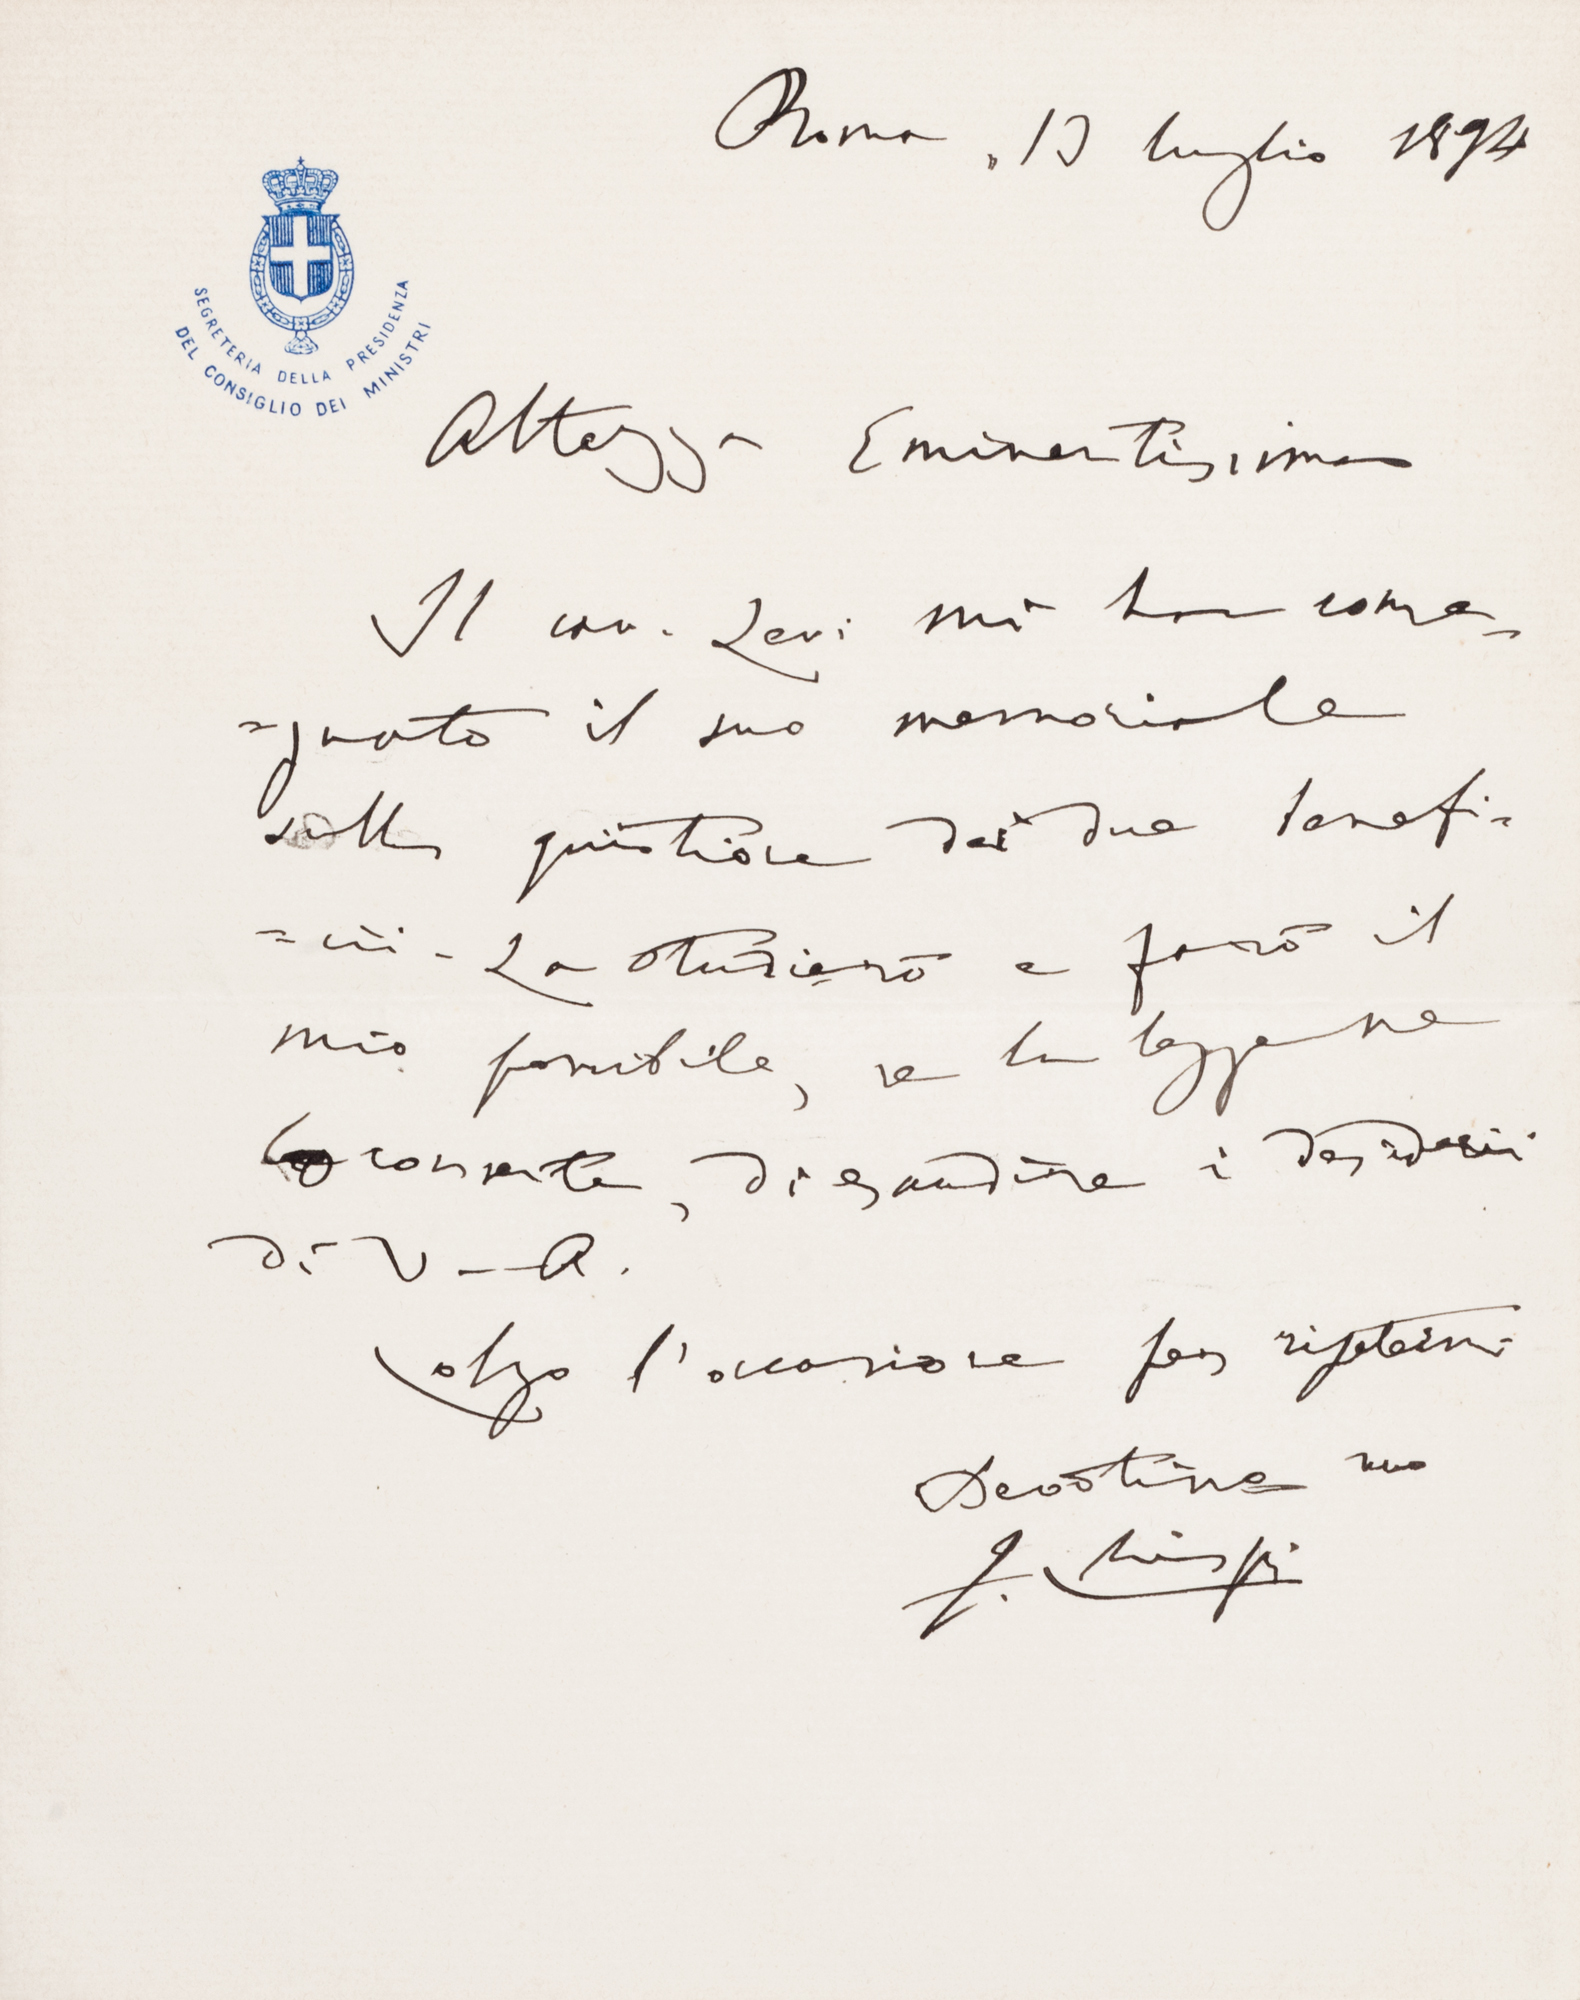 Roma, 13 luglio 1894
SEGRETERIA DELLA PRESIDENZA
DEL CONSIGLIO DEI MINISTRI
Altezza Eminentissima
Il cav. Levi mi ha conse=
=gnato il suo memoriale
sulla quistione dei due benefi=
=cii. La studierò e farò il
mio possibile, se la legge me
lo consente, di esaudire i desiderii
di V. A.
Colgo l'occasione per ripetermi
Devotissimo
F. Crispi